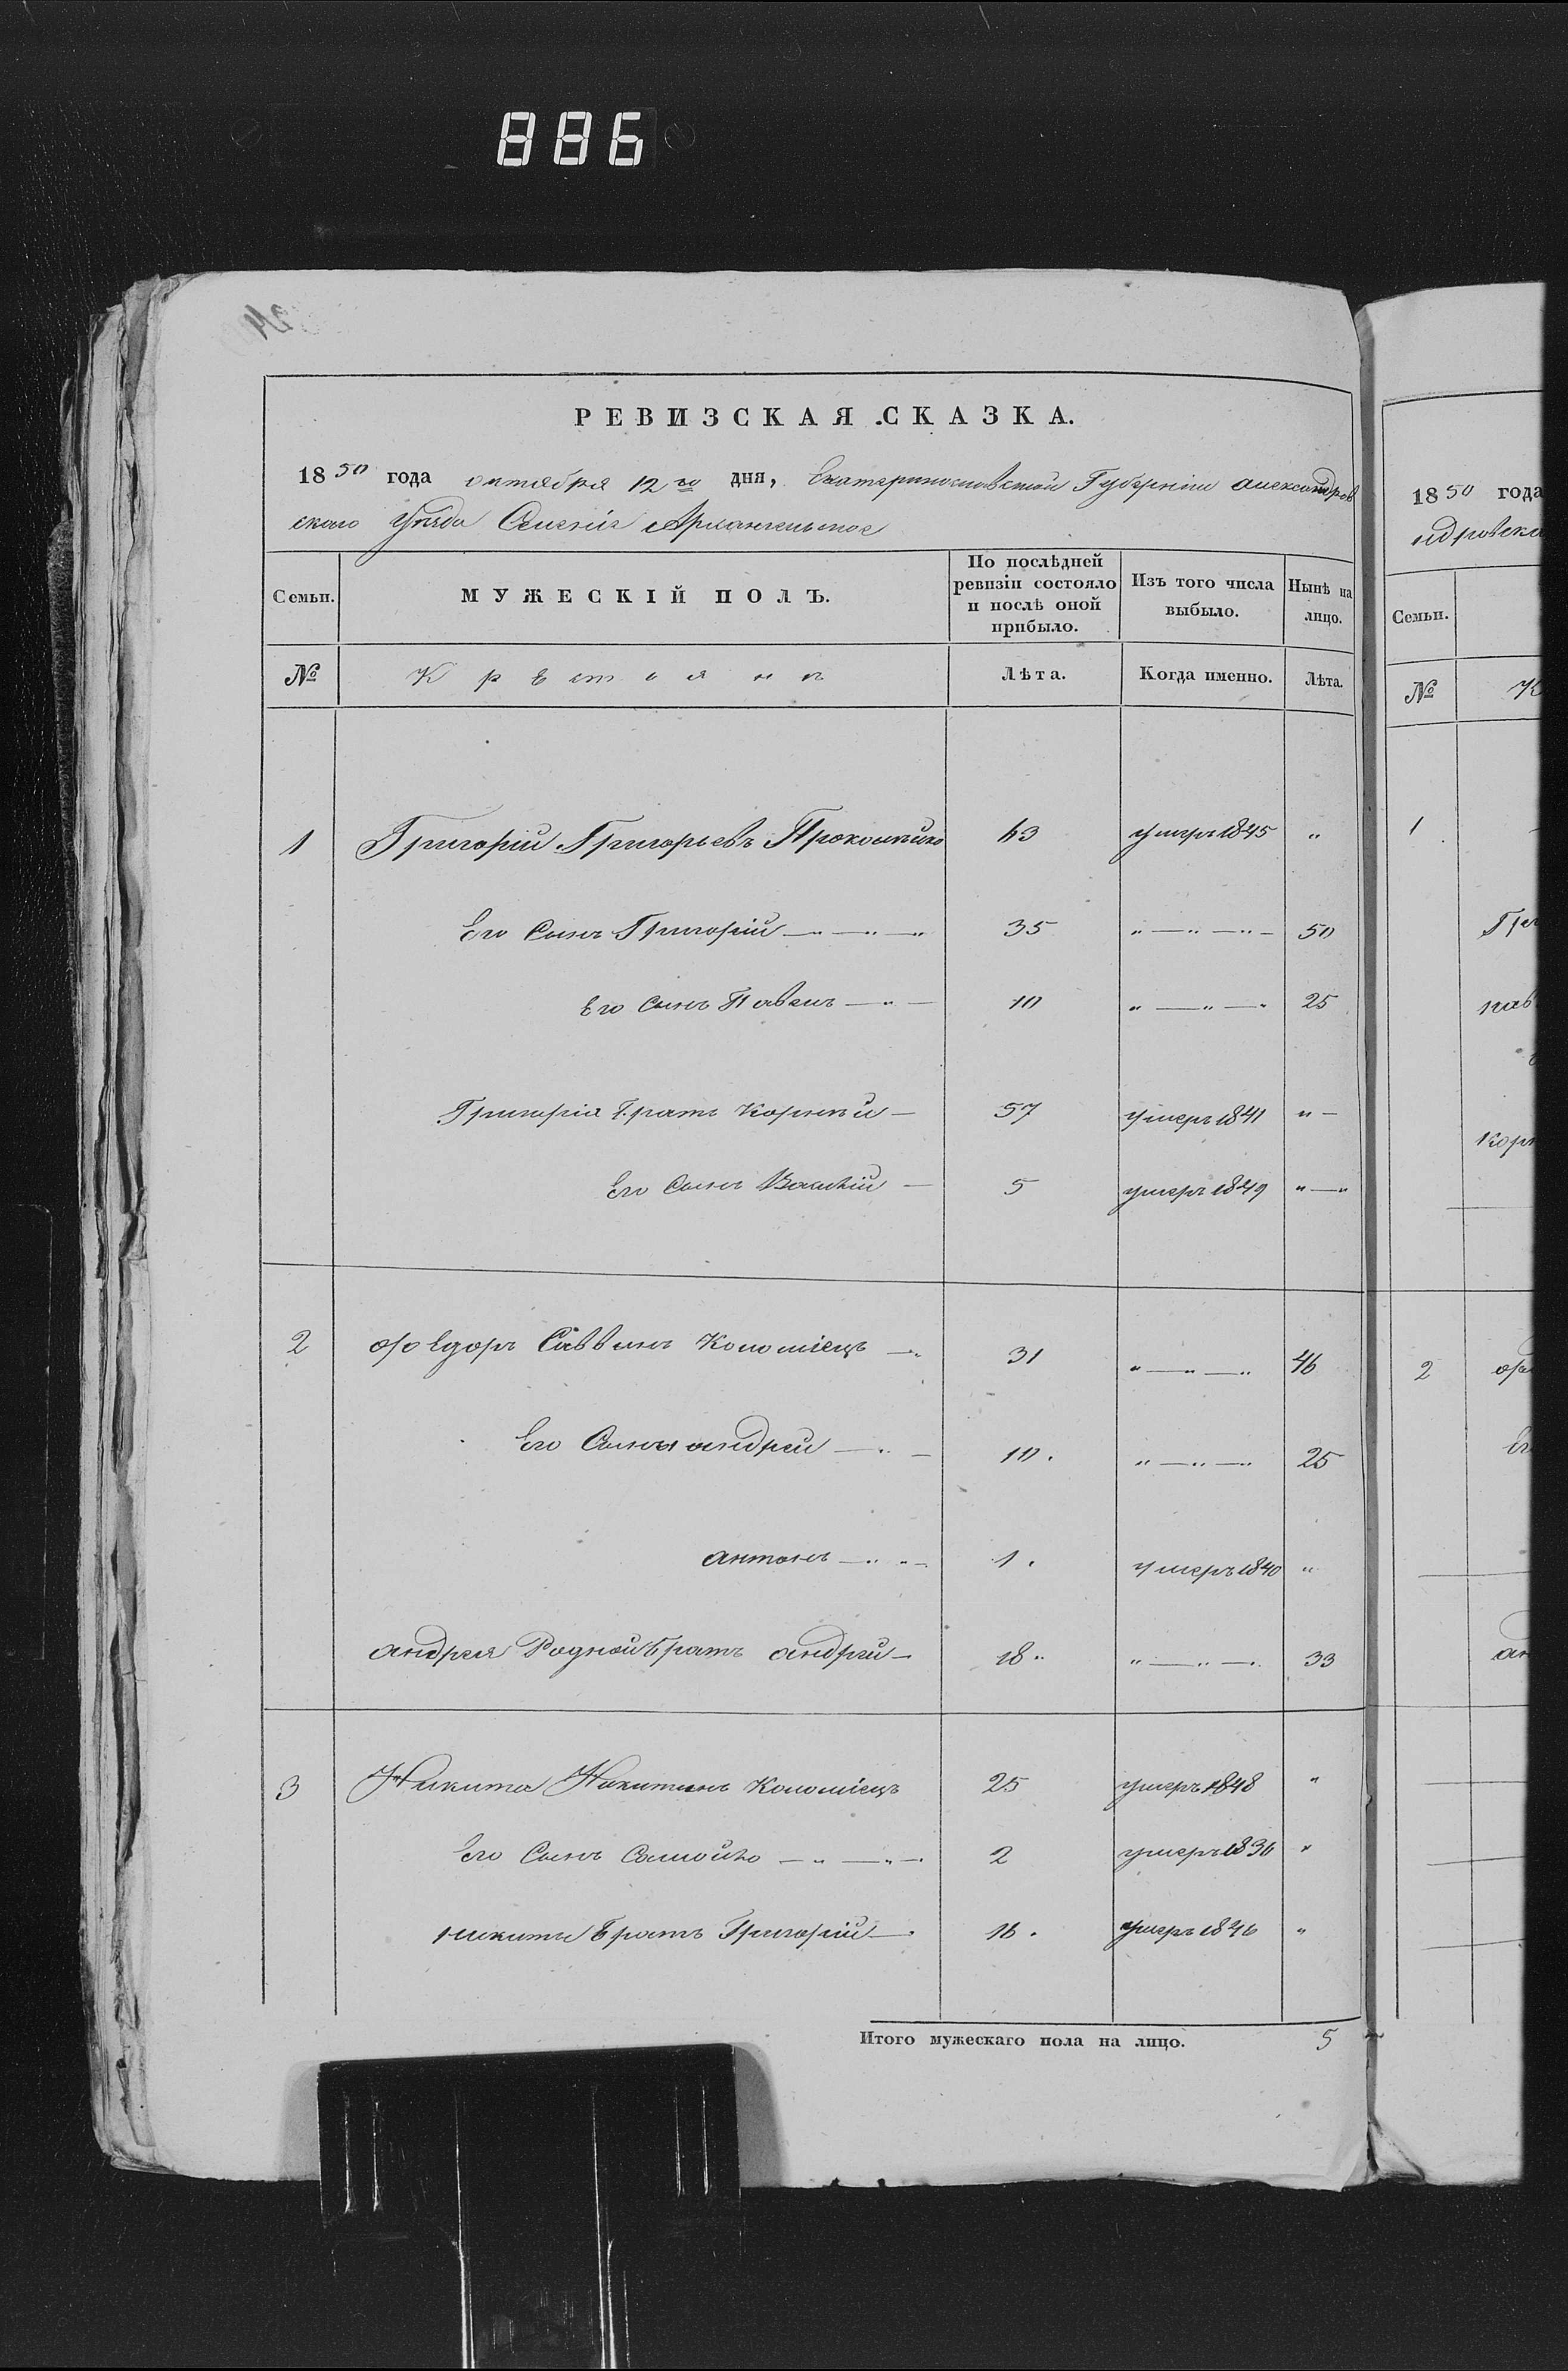 886
РЕВИЗСКАЯ СКАЗКА.
1850 года октября 12го дня, Екатеринославской Губернiи александров
скаго уѣзда Селенiя Архангельское
Семьи. МУЖЕСКІЙ ПОЛЪ. По послѣдней ревизіи состояло и послѣ оной прибыло. Изъ того числа выбыло. Нынѣ на лицо.
№ Крестьянъ Лѣта. Когда именно. Лѣта.
1 Григорій Григорьевъ 63 умеръ 1845 "
Его Сынъ Григорій 35 " 50
Его Сынъ Павелъ 10 " 25
Григорія Братъ Корнѣй 57 умеръ 1841 "
Его Сынъ Василій 5 умеръ 1849 "
2 Федоръ Саввинъ Коломіецъ 31 " 46
Его Сынъ андрей 10. " 25
антонъ 1. умеръ 1840 "
андрея Родной Братъ андрей 18 " 33
3 Никита Никитинъ Коломіецъ 25 умеръ 1848 "
Его Сынъ Самойло 2 умеръ 1836 "
никиты Братъ Григорій 16. умеръ 1846 "
Итого мужескаго пола на лицо. 5
1850 года
ндровска
Семьи.
№ К
1
Гри
пав
корн
2
Ег
ан